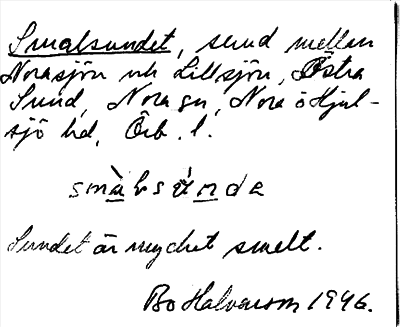 Smalsundet, sund mellan
Norasjön och Lillsjön, Östra
Sund, Nora sn, Nora o Hjul-
sjö hd, Örb. l.
Sundet är mycket smalt.
Bo Halvarson 1946.